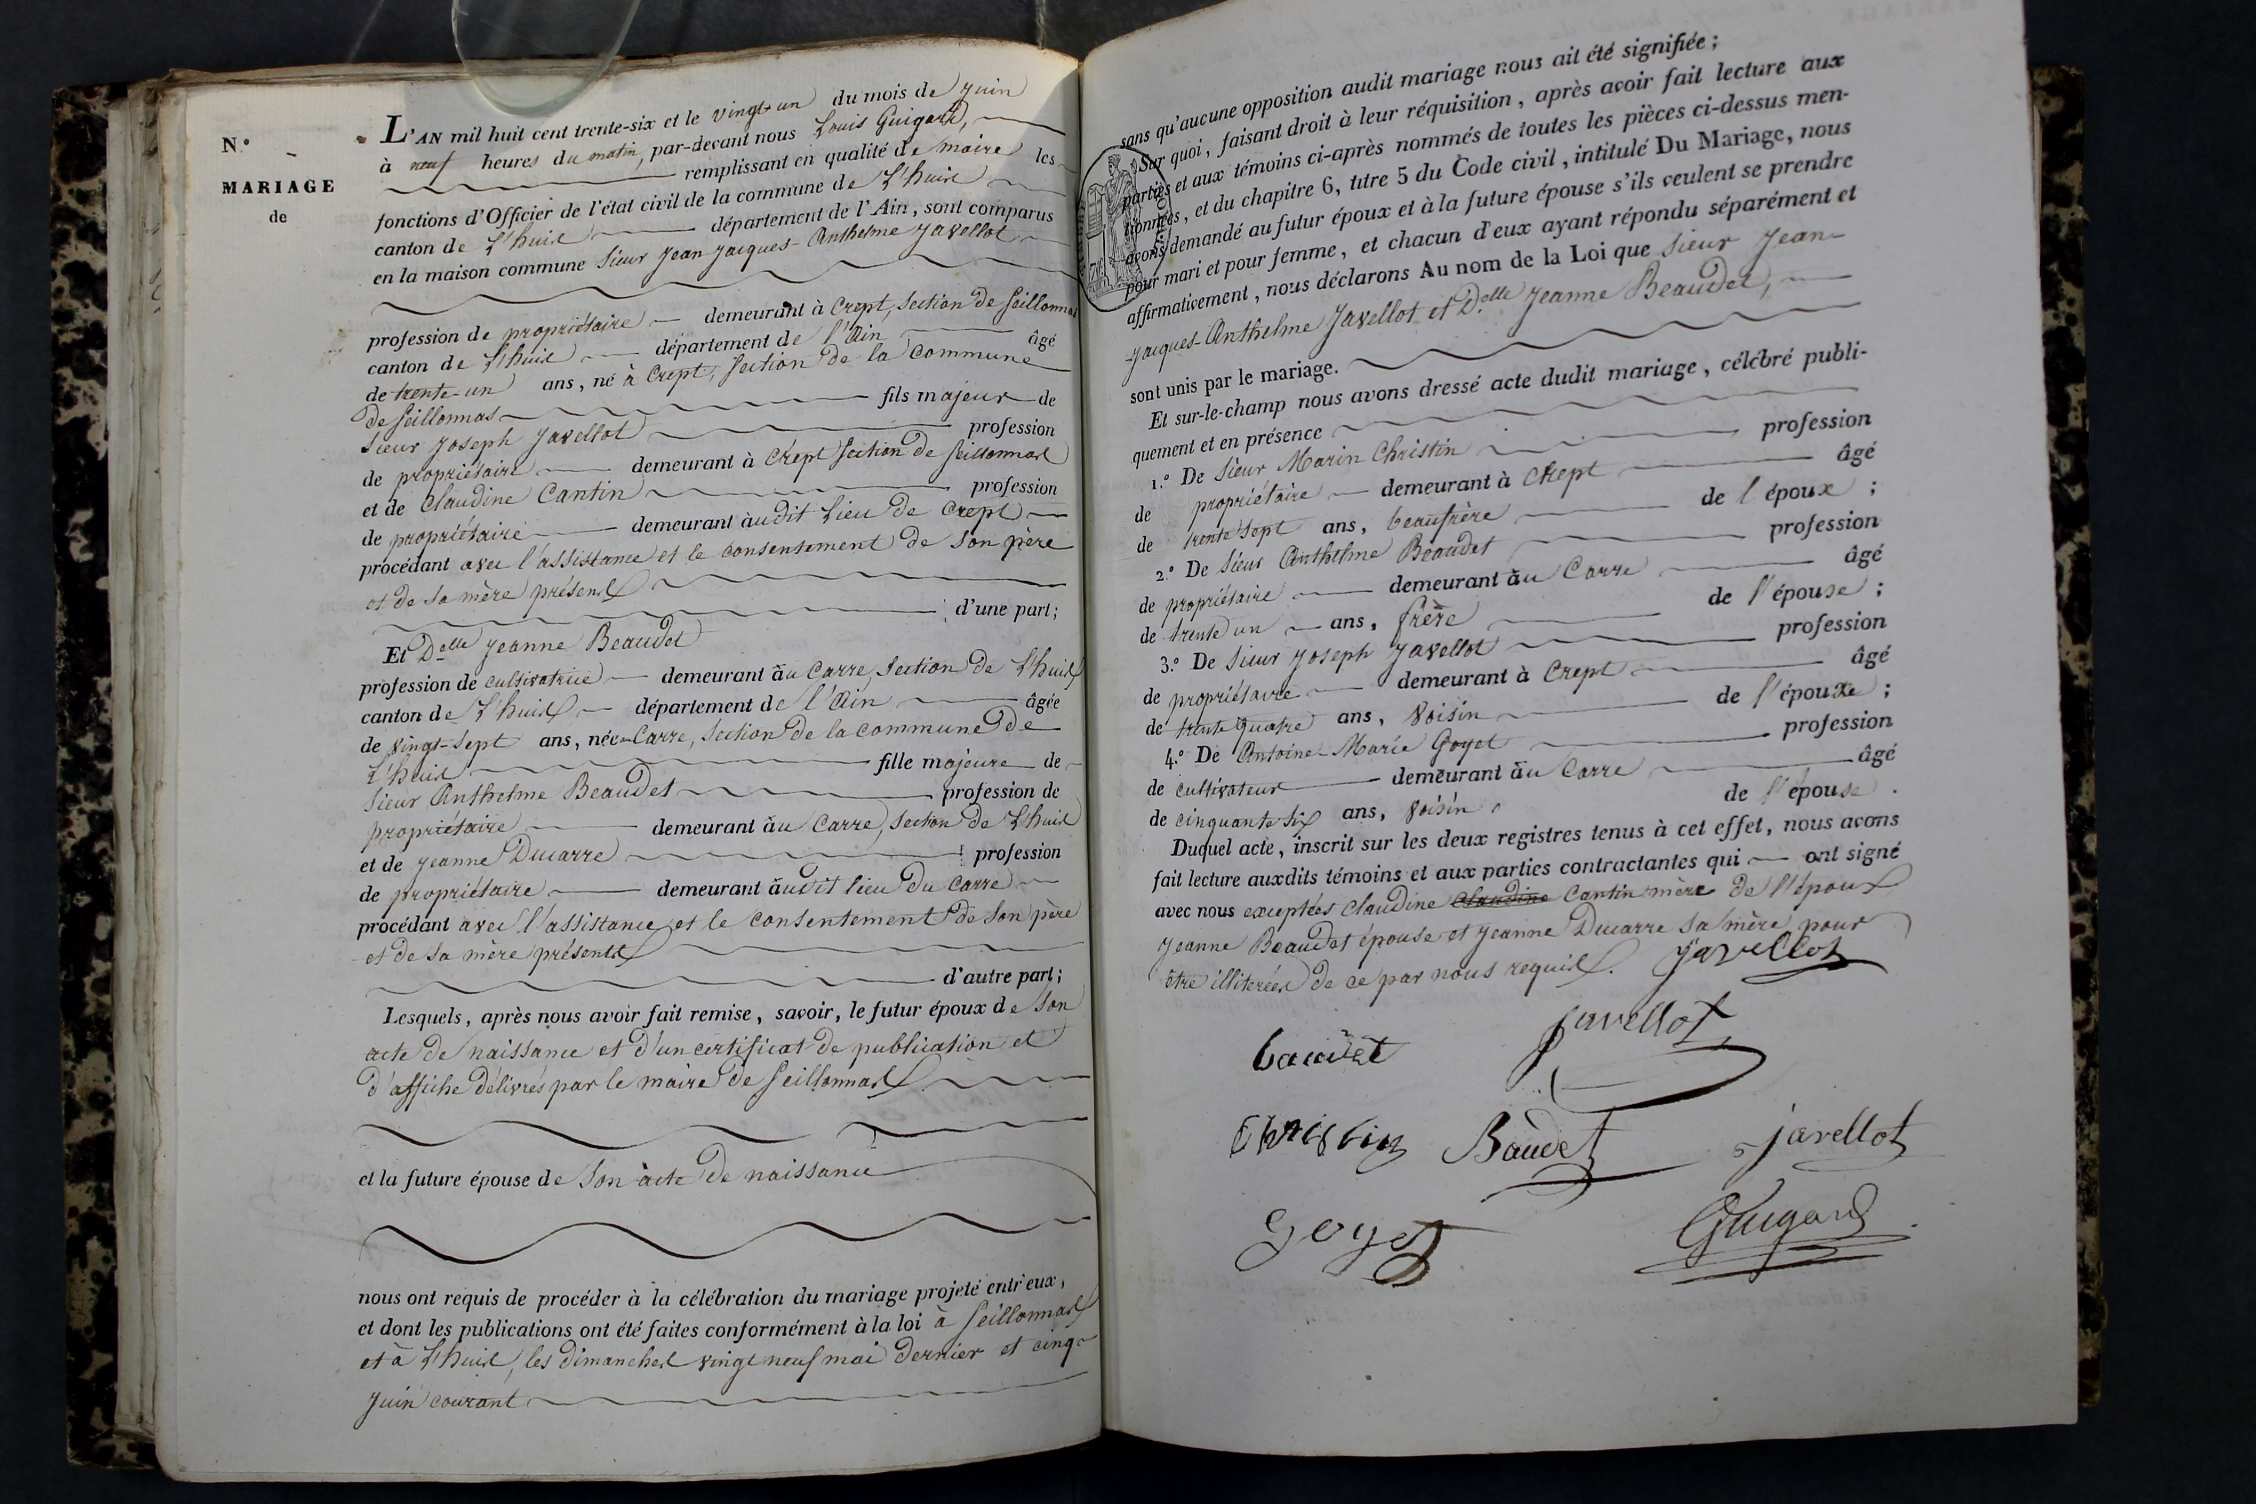 N.°
MARIAGE
de
L'AN mil huit cent trente-six et le vingt-un du mois de juin
à neuf heures du matin, par-devant nous Louis Guigard,
remplissant en qualité de maire les
fonctions d'Officier de l'état civil de la commune de L'huis
canton de L'huis département de l'Ain, sont comparus
en la maison commune Sieur Jean Jacques-Anthelme Javellot
profession de propriétaire demeurant à Crept, section de Seillonnas
canton de L'huis département de l'Ain âgé
de trente-un ans, né à Crept, section de la commune
de Seillonnas fils majeur de
Sieur Joseph Javellot profession
de propriétaire demeurant à Crept section de Seillonnas
et de Claudine Cantin profession
de propriétaire demeurant audit lieu de Crept
procédant avec l'assistance et le consentement de son père
et de sa mère présents
d'une part;
Et Delle Jeanne Beaudet
profession de cultivatrice demeurant au Carre, section de L'huis
canton de L'huis département de l'Ain âgée
de vingt-sept ans, née au Carre, section de la commune de
L'huis fille majeure de
Sieur Anthelme Beaudet profession de
propriétaire demeurant au Carre, section de L'huis
et de Jeanne Ducarre profession
de propriétaire demeurant audit lieu du Carre
procédant avec l'assistance et le consentement de son père
et de sa mère présents
d'autre part;
Lesquels, après nous avoir fait remise, savoir, le futur époux de son
acte de naissance et d'un certificat de publication et
d'affiche délivrés par le maire de Seillonnas
et la future épouse de son acte de naissance
nous ont requis de procéder à la célébration du mariage projeté entr'eux,
et dont les publications ont été faites conformément à la loi à Seillonnas
et à L'huis, les dimanches vingt neuf mai dernier et cinq
juin courant
sans qu'aucune opposition audit mariage nous ait été signifiée;
Sur quoi, faisant droit à leur réquisition, après avoir fait lecture aux
parties et aux témoins ci-après nommés de toutes les pièces ci-dessus men-
tionnées, et du chapitre 6, titre 5 du Code civil, intitulé Du Mariage, nous
avons demandé au futur époux et à la future épouse s'ils veulent se prendre
pour mari et pour femme, et chacun d'eux ayant répondu séparément et
affirmativement, nous déclarons Au nom de la Loi que Sieur Jean-
Jacques-Anthelme Javellot et Delle Jeanne Beaudet,
sont unis par le mariage.
Et sur-le-champ nous avons dressé acte dudit mariage, célébré publi-
quement et en présence
1.° De Sieur Marin Christin profession
de propriétaire demeurant à Crept âgé
de trente sept ans, beaufrère de l'époux;
2.° De Sieur Anthelme Beaudet profession
de propriétaire demeurant au Carre âgé
de trente un ans, frère de l'épouse;
3.° De Sieur Joseph Javellot profession
de propriétaire demeurant à Crept âgé
de trente quatre ans, voisin de l'époux;
4.° De Antoine-Marie Goyet profession
de cultivateur demeurant au Carre âgé
de cinquante six ans, voisin de l'épouse.
Duquel acte, inscrit sur les deux registres tenus à cet effet, nous avons
fait lecture auxdits témoins et aux parties contractantes qui ont signé
avec nous exceptées Claudine Claudine Cantin mère de l'époux
Jeanne Beaudet épouse et Jeanne Ducarre sa mère pour
être illiterées de ce par nous requis. javellot
javellot
baudet
Christin Baudet javellot
Goyet Guigard